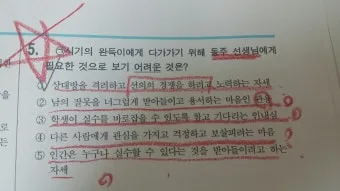 5. ㉠시기의 완득이에게 다가가기 위해 동주 선생님에게
필요한 것으로 보기 어려운 것은?
① 상대방을 격려하고 선의의 경쟁을 하려고 노력하는 자세
② 남의 잘못을 너그럽게 받아들이고 용서하는 마음인 관용
③ 학생이 실수를 바로잡을 수 있도록 참고 기다리는 인내심
④ 다른 사람에게 관심을 가지고 걱정하고 보살피려는 마음
⑤ 인간은 누구나 실수할 수 있다는 것을 받아들이려고 하는
자세